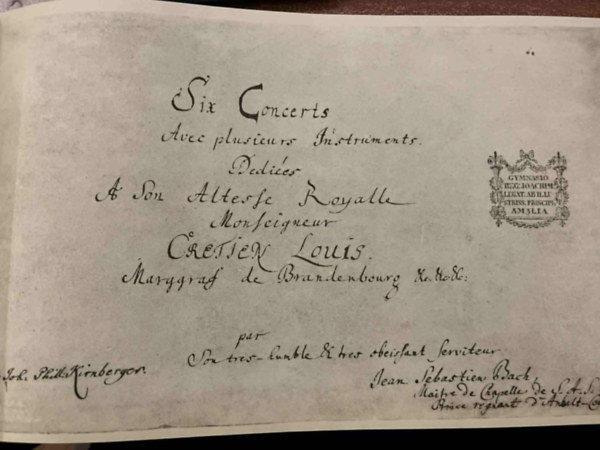 Six Concerts
Avec plusieurs Instruments.
Dediées
A Son Altesse Royalle
Monseigneur
CRETIEN LOUIS.
Marggraf de Brandenbourg &c. &c. &c:
par
Son tres-humble & tres obeissant serviteur
Jean Sebastien Bach,
Maitre de Chapelle de S. A. S.
Prince regnant d'Anhalt-
Joh. Phill. Kirnberger.
GYMNASIO
REG. IOACHIM.
LEGAT. AB ILLU
STRISS. PRINCIPE
AMALIA